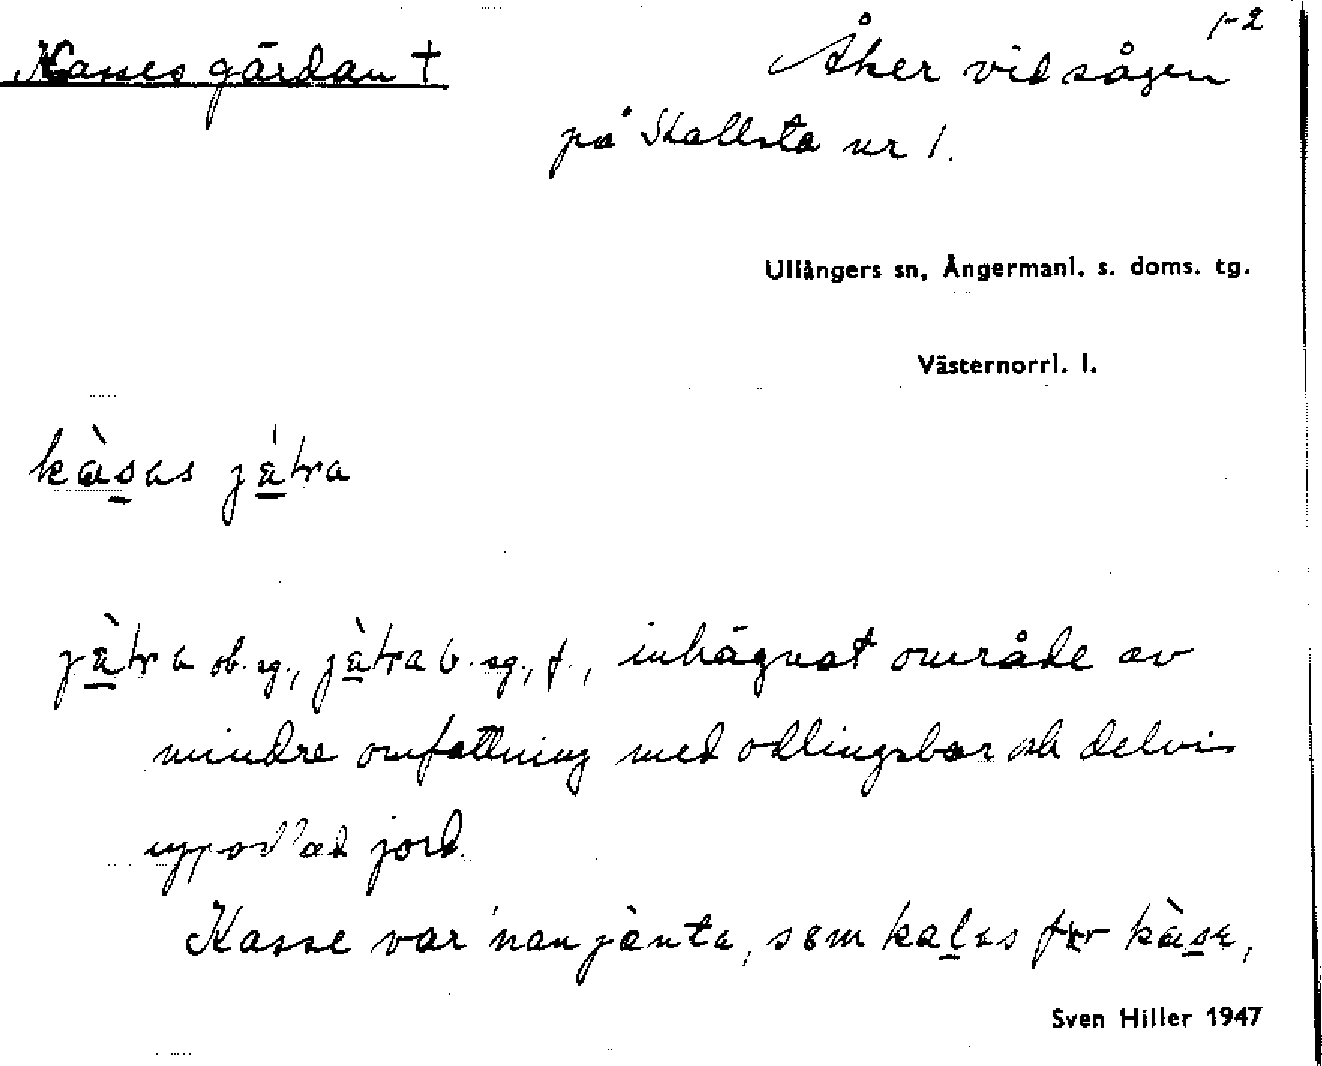 1-2
Kasses gärdan † Åker vid sågen
på Skallsta nr 1.
Ullångers sn, Ångermanl. s. doms. tg.
Västernorrl. l.
kàsas jätra
jätra ob. sg., jätra b. sg., f., inhägnat område av
mindre omfattning med odlingsbar och delvis
uppodlad jord.
Kasse var nan jänta, som kalas för kàse,
Sven Hiller 1947